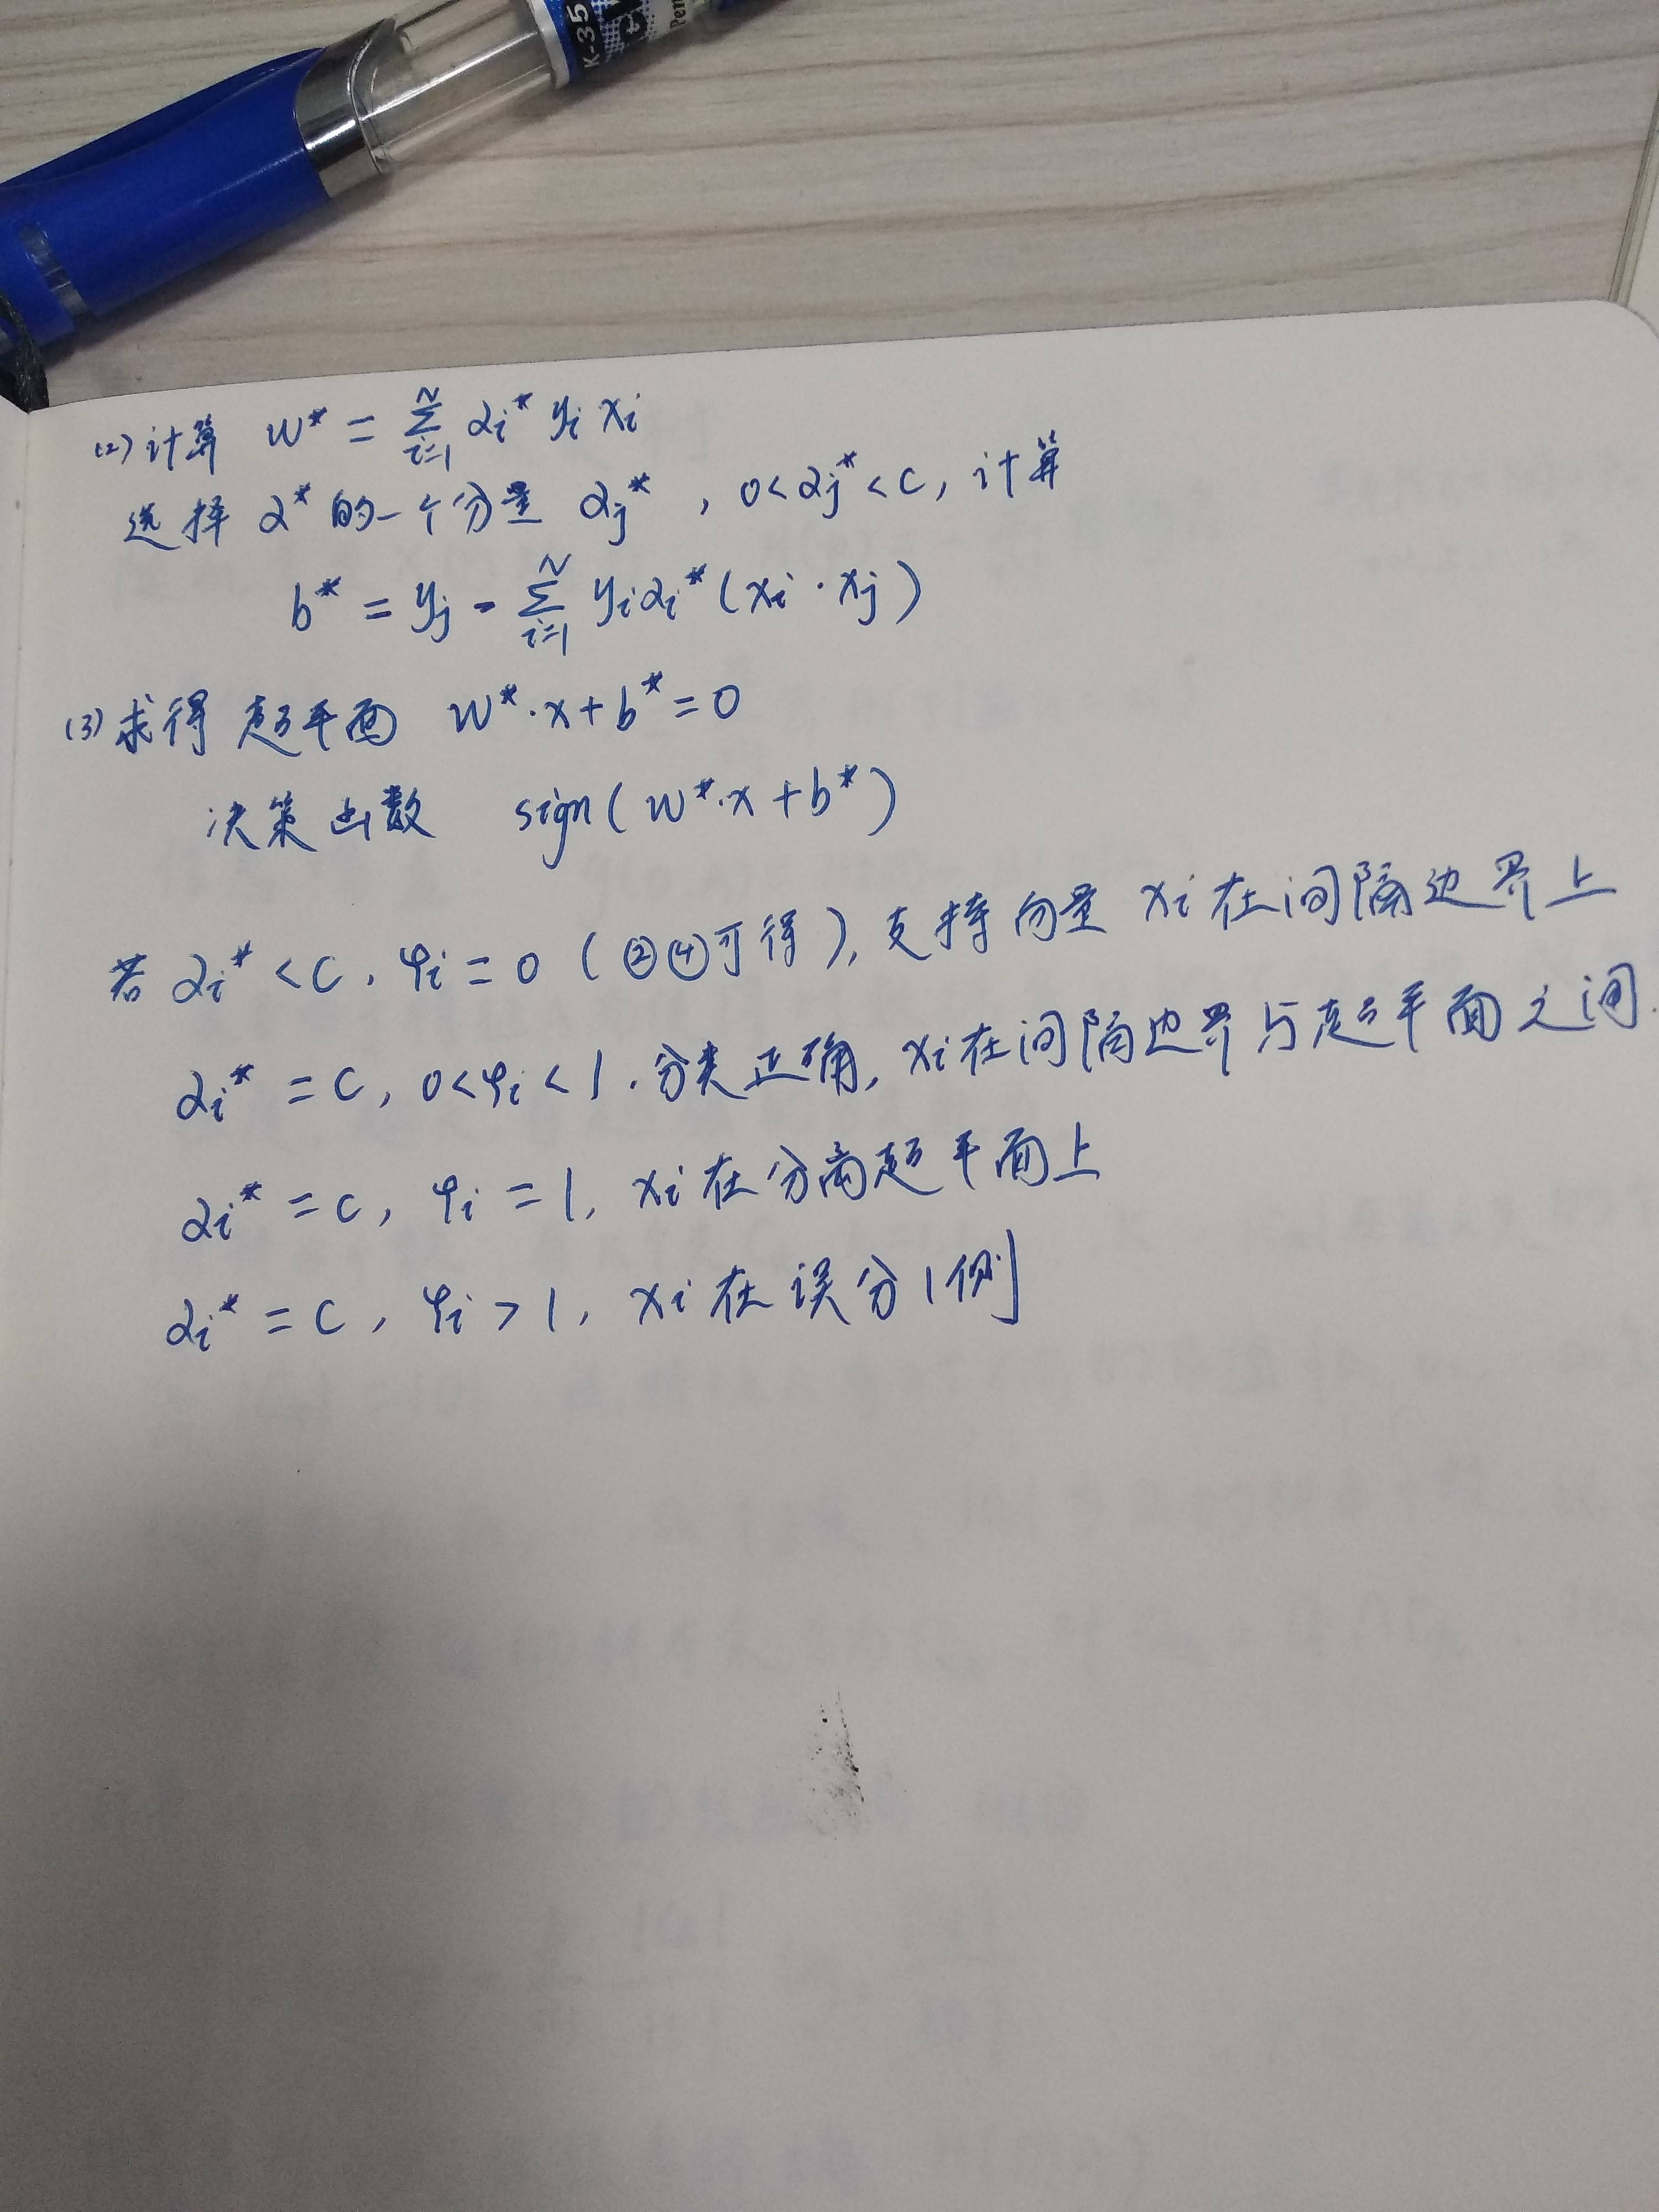 K-35
Pen
(2) 计算 w* = Σ_{i=1}^{N} α_i* y_i x_i
选择 α* 的一个分量 α_j* , 0<α_j*<C, 计算
b* = y_j - Σ_{i=1}^{N} y_i α_i* (x_i · x_j)
(3) 求得 超平面 w*·x+b*=0
决策函数 sign(w*·x+b*)
若 α_i* <C, φ_i=0 (②④可得), 支持向量 x_i 在间隔边界上
α_i* =C, 0<φ_i<1. 分类正确, x_i在间隔边界与超平面之间.
α_i* =C, φ_i=1, x_i在分离超平面上
α_i* =C, φ_i>1, x_i在误分1侧